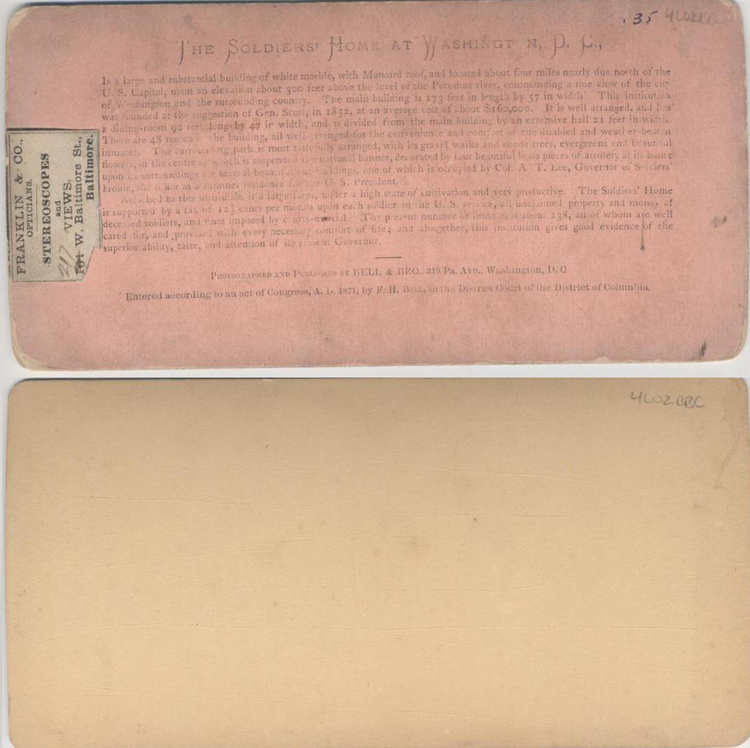 .35 4L02BBC
THE SOLDIERS' HOME AT WASHINGTON, D. C.,
Is a large and substantial building of white marble, with Mansard roof, and located about four miles nearly due north of the
U. S. Capitol, upon an elevation about 500 feet above the level of the Potomac river, commanding a fine view of the city
of Washington and the surrounding country. The main building is 173 feet in length by 57 in width. This institution
was founded at the suggestion of Gen. Scott, in 1852, at an average cost of about $160,000. It is well arranged, and has
a dining-room 92 feet long by 47 in width, and is divided from the main building by an extensive hall 21 feet in width.
There are 48 rooms in the building, all well arranged for the convenience and comfort of the disabled and weather-beaten
inmates. The surrounding park is most tastefully arranged, with its gravel walks and shade trees, evergreens and beautiful
flowers, in the centre of which is suspended the national banner, decorated by four beautiful brass pieces of artillery at its base;
upon its surroundings are several beautiful buildings, one of which is occupied by Col. A. T. Lee, Governor of Soldiers'
Home, the other is a summer residence for the U. S. President.
Attached to this institution is a large farm, under a high state of cultivation and very productive. The Soldiers' Home
is supported by a tax of 12½ cents per month upon each soldier in the U. S. service, all unclaimed property and money of
deceased soldiers, and fines imposed by court-martial. The present number of inmates is about 238, all of whom are well
cared for, and provided with every necessary comfort of life; and altogether, this institution gives good evidence of the
superior ability, taste, and attention of its present Governor.
PHOTOGRAPHED AND PUBLISHED BY BELL & BRO., 319 PA. AVE. WASHINGTON, D. C
Entered according to an act of Congress, A. D. 1871, by F. H. BELL, in the District Court of the District of Columbia.
FRANKLIN & CO.,
OPTICIANS.
STEREOSCOPES
and
VIEWS.
217
W. Baltimore St.,
Baltimore.
4L02BBC